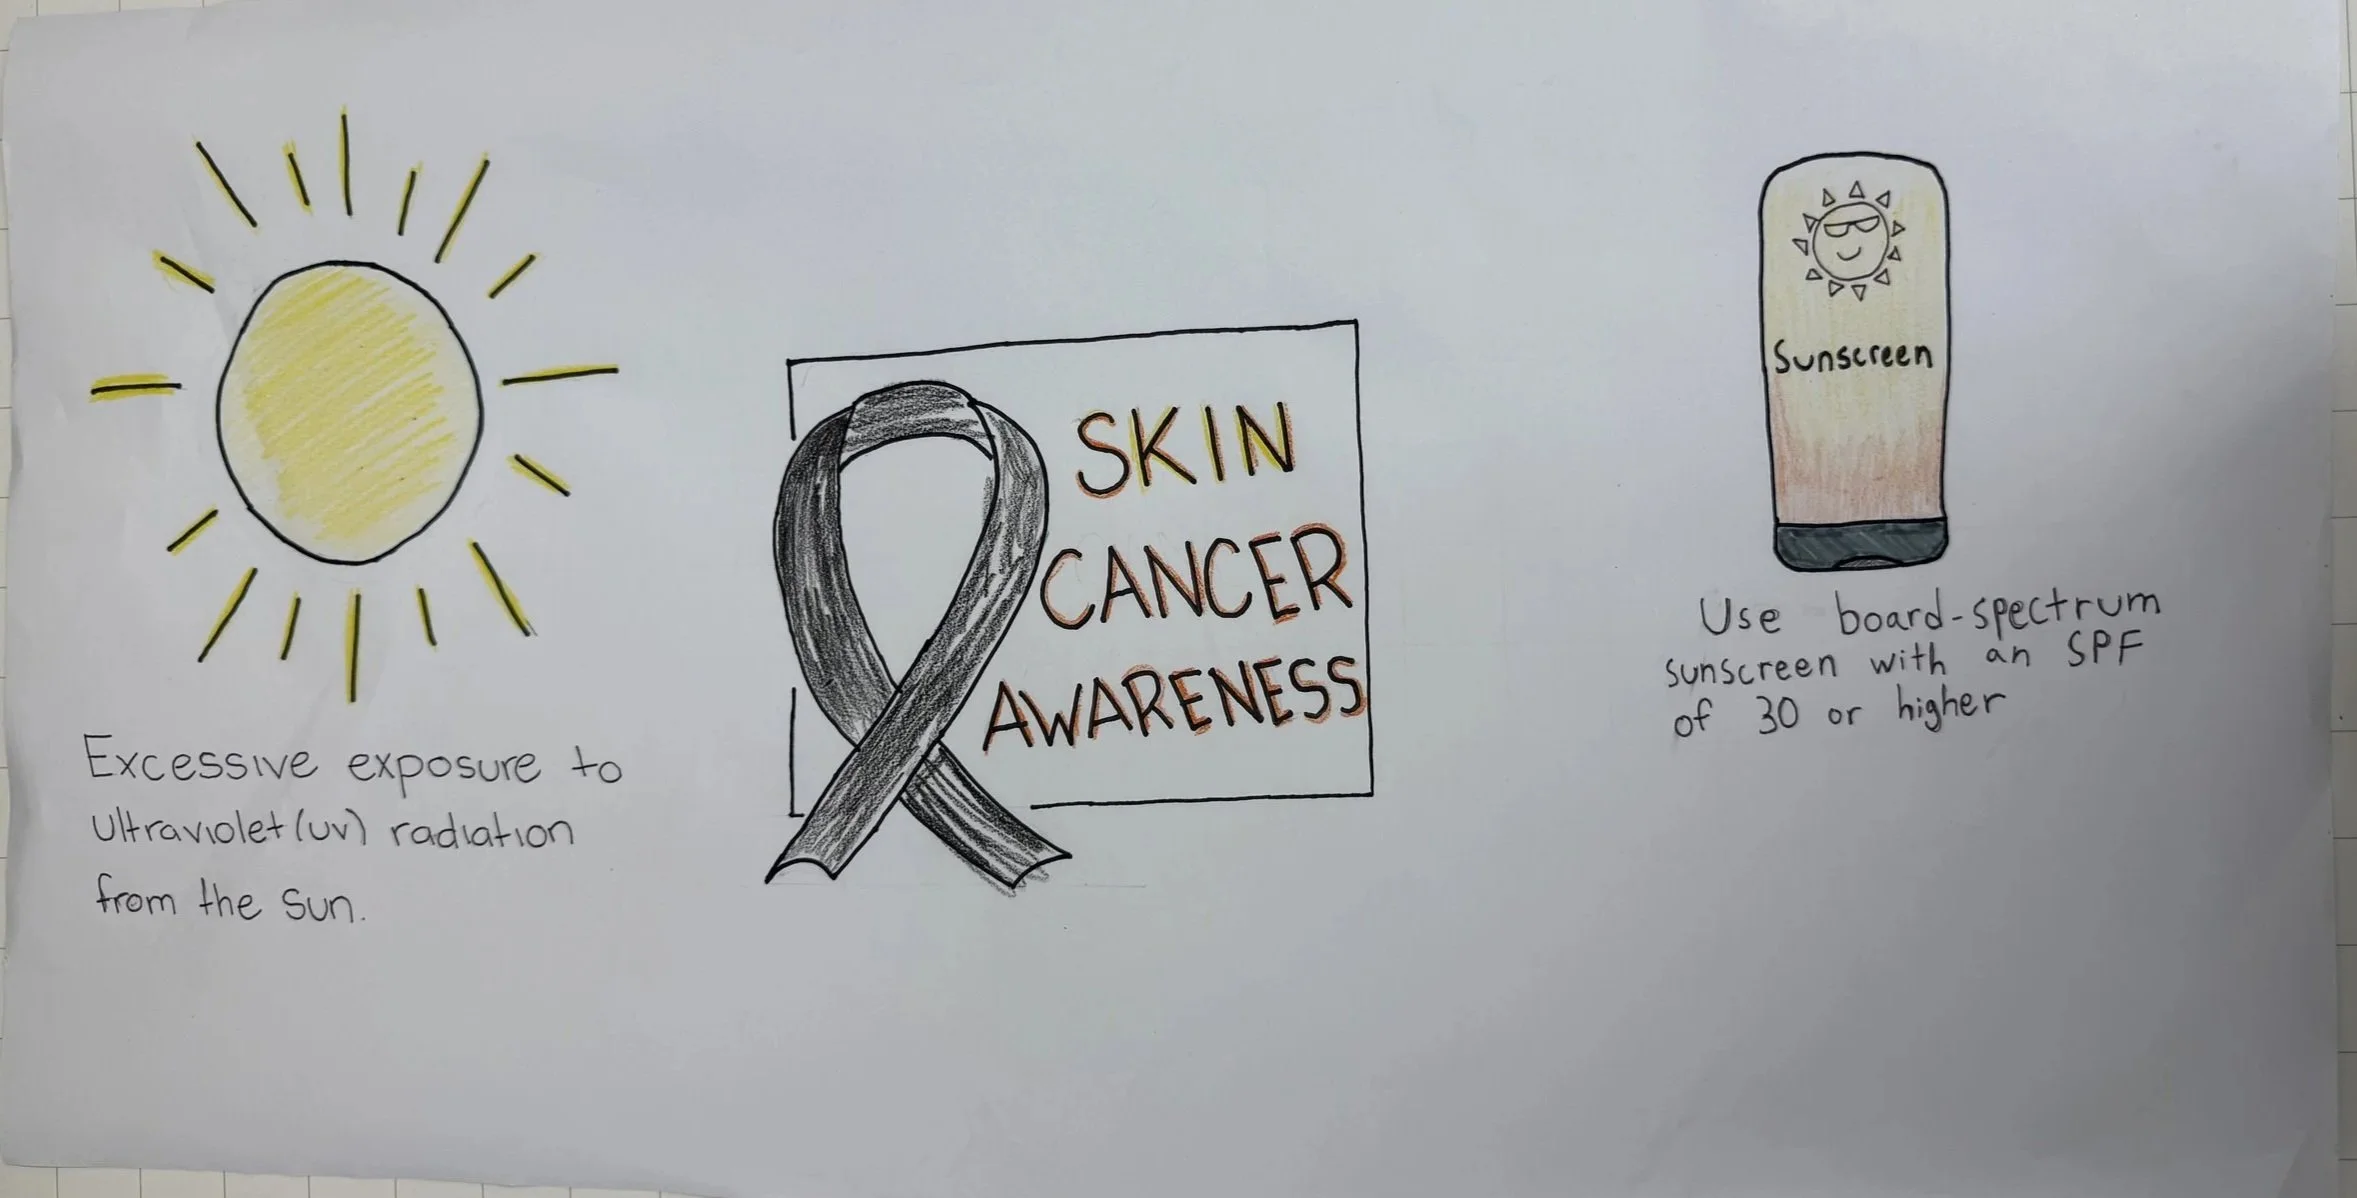 Excessive exposure to
Ultraviolet (UV) radiation
from the sun.
SKIN
CANCER
AWARENESS
Sunscreen
Use board-spectrum
sunscreen with an SPF
of 30 or higher